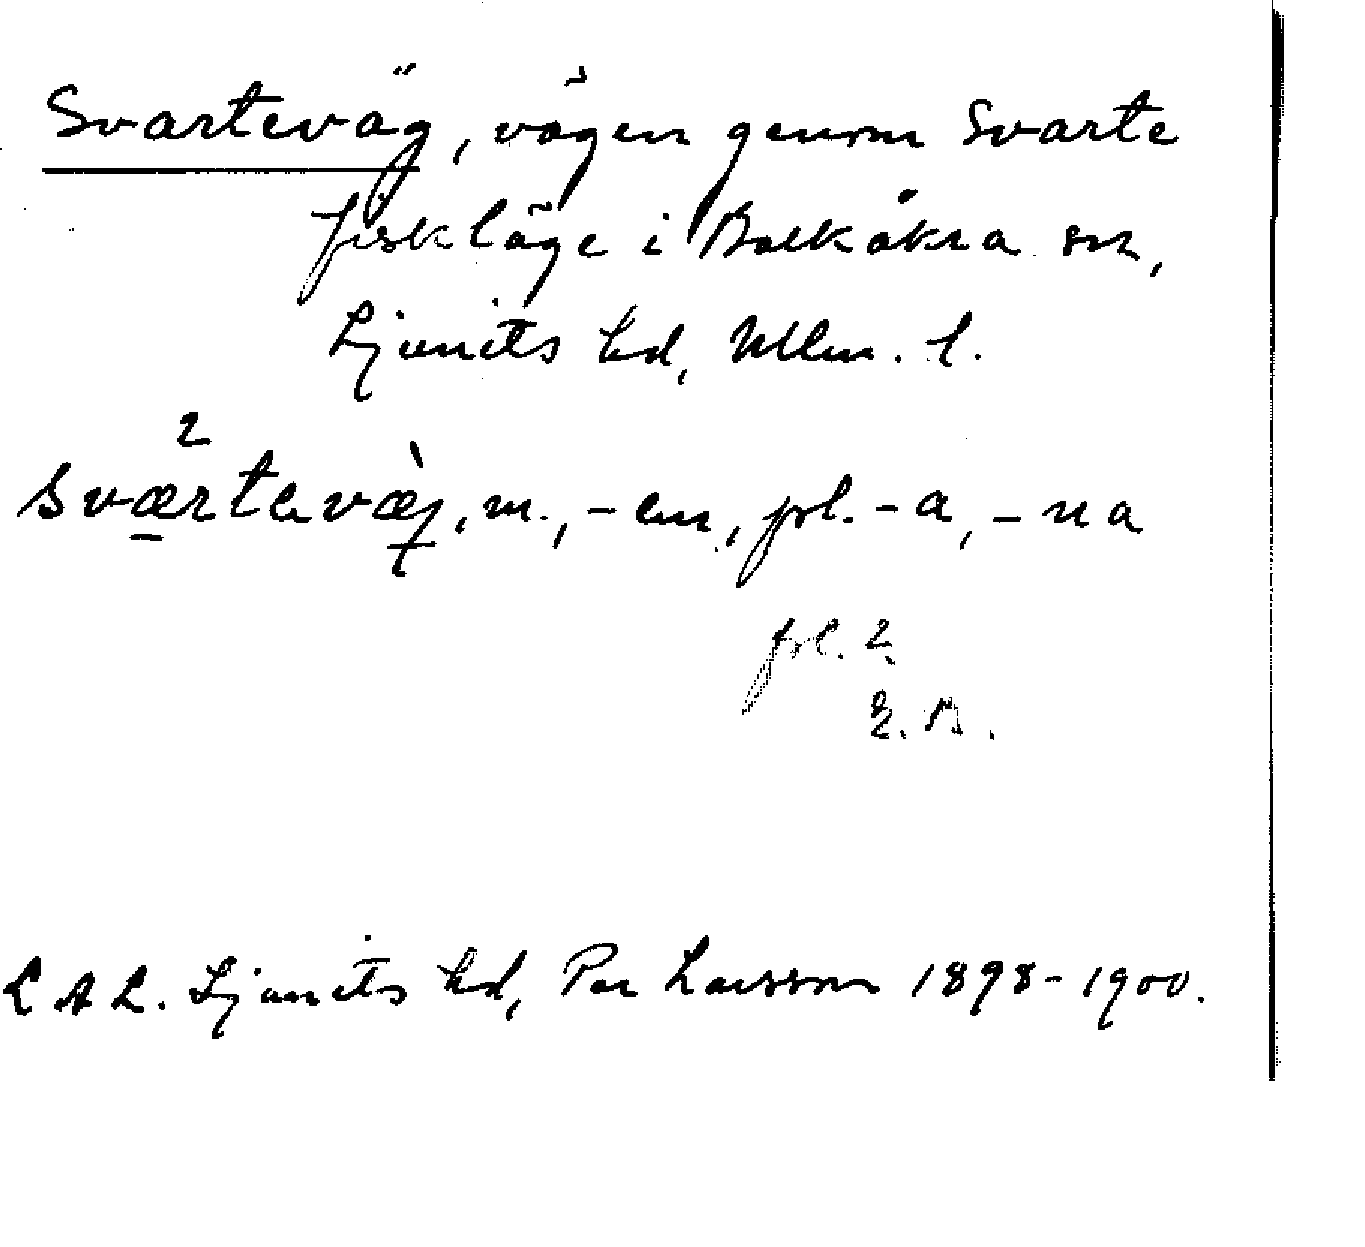 Svarteväg, vägen genom Svarte
fiskläge i Balkåkra sn,
Ljunits hd, Mlm. l.
sværtevæ̀j, m., -en, pl. -a, -na
pl. 2.
E. B.
LAL. Ljunits hd, Per Larsson 1898-1900.